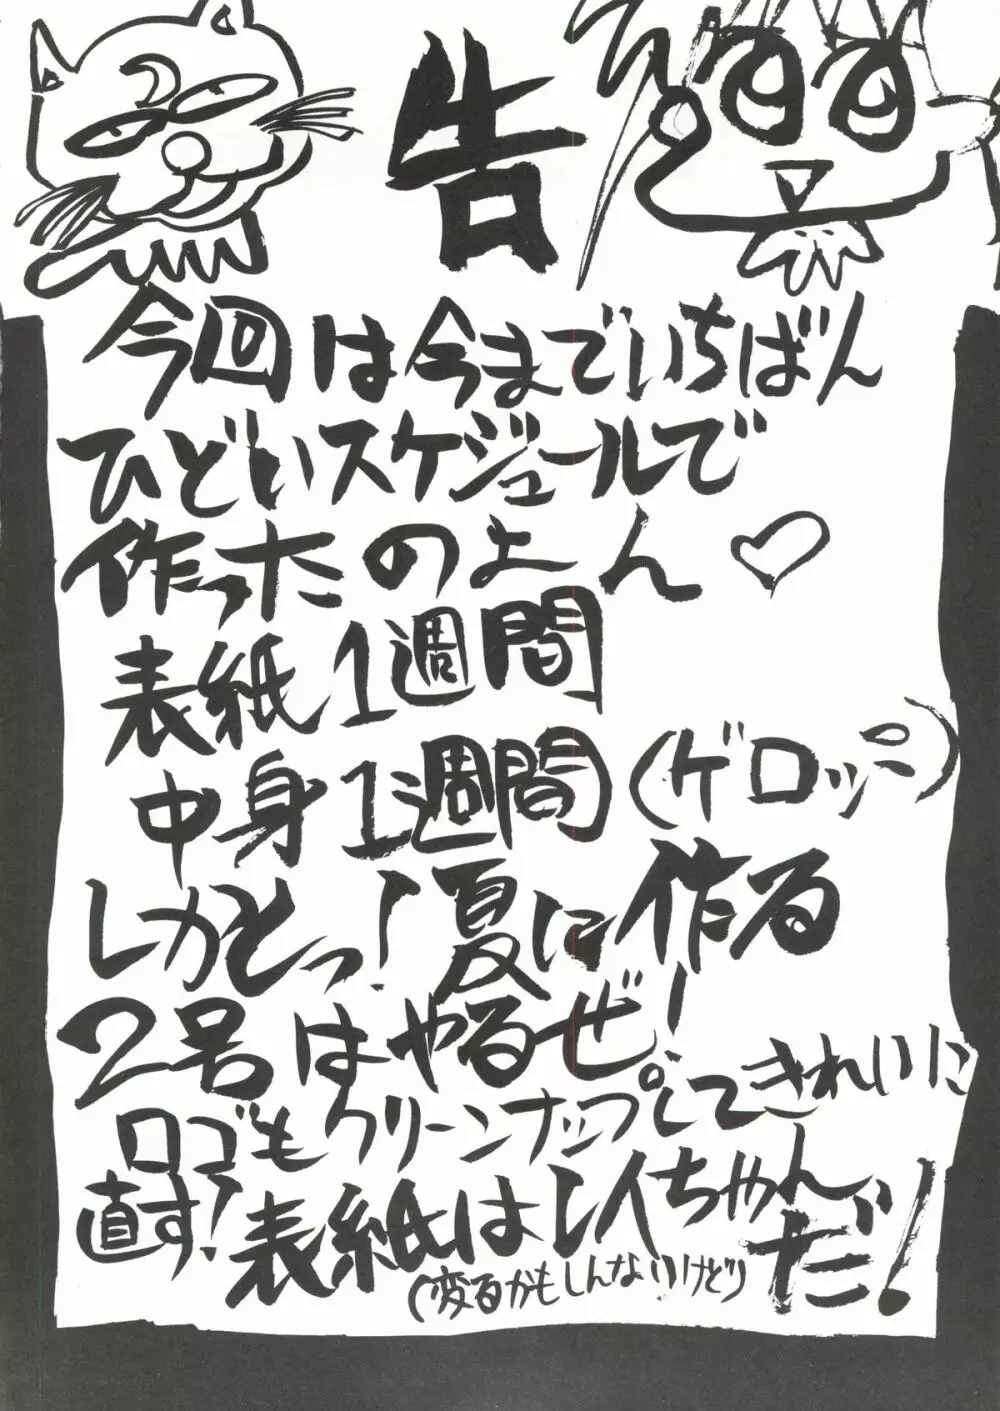 告
今回は今まででいちばん
ひどいスケジュールで
作ったのよん♡
表紙1週間
中身1週間(ゲロッピ)
しかとっ!夏に作る
2号はやるぜ!
ロゴもクリーンナップしてきれいに
直す!表紙はレイちゃんだ!
(変るかもしんないけどり